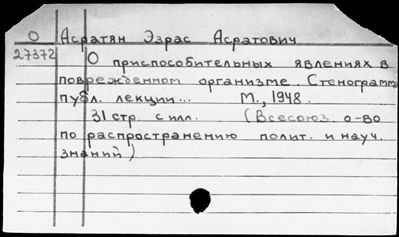 О Асратян Эзрас Асратович
27372 О приспособительных явлениях в
поврежденном организме. Стенограмм
публ. лекции... М., 1948.
31 стр. с илл. (Всесоюз. о-во
по распространению полит. и науч.
знаний)